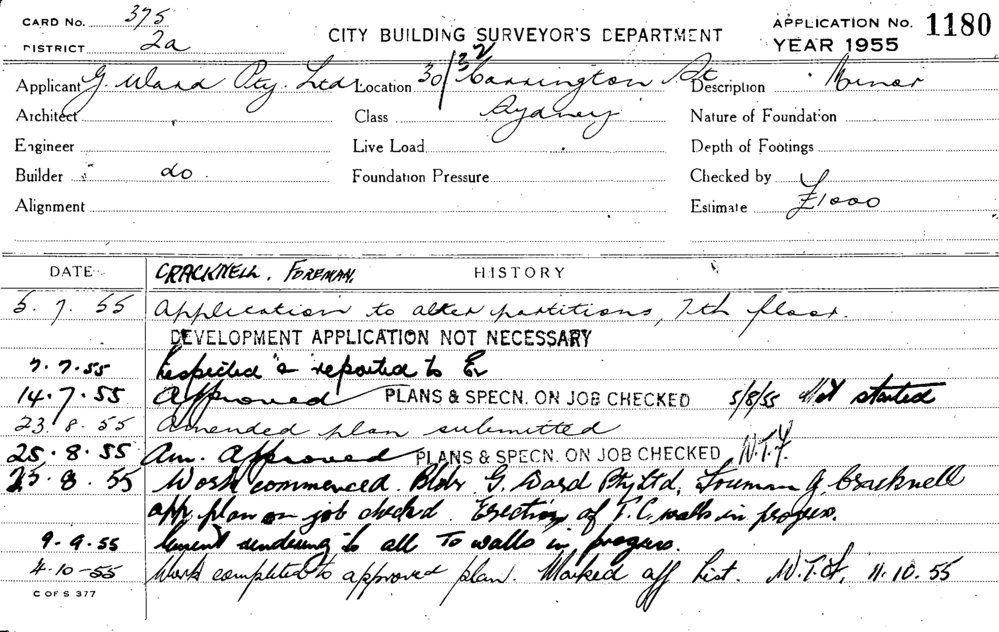 CARD No. 375
DISTRICT 2a
CITY BUILDING SURVEYOR'S DEPARTMENT
APPLICATION No. 1180
YEAR 1955
Applicant G. Ward Pty. Ltd. Location 30/32 Carrington St Description Minor
Architect Class Sydney Nature of Foundation
Engineer Live Load Depth of Footings
Builder do. Foundation Pressure Checked by
Alignment Estimate £1000
DATE CRACKNELL. FOREMAN. HISTORY
5.7.55 Application to alter partitions, 7th floor.
DEVELOPMENT APPLICATION NOT NECESSARY
7.7.55 Inspected & reported to
14.7.55 Approved PLANS & SPECN. ON JOB CHECKED 5/8/55 Not started
23.8.55 Amended plan submitted
25.8.55 Am. Approved PLANS & SPECN. ON JOB CHECKED
25.8.55 Work commenced. Bldr G. Ward Pty Ltd, Foreman G. Cracknell
app. plan on job checked. Erection of T.C. walls in progress.
9.9.55 Cement rendering to all TC walls in progress.
4.10-55 Work completed to approved plan. Marked off list. 11.10.55
C OF S 377